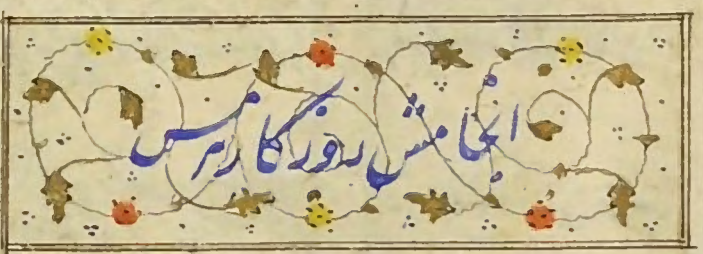 انجامش روزگار هرمس